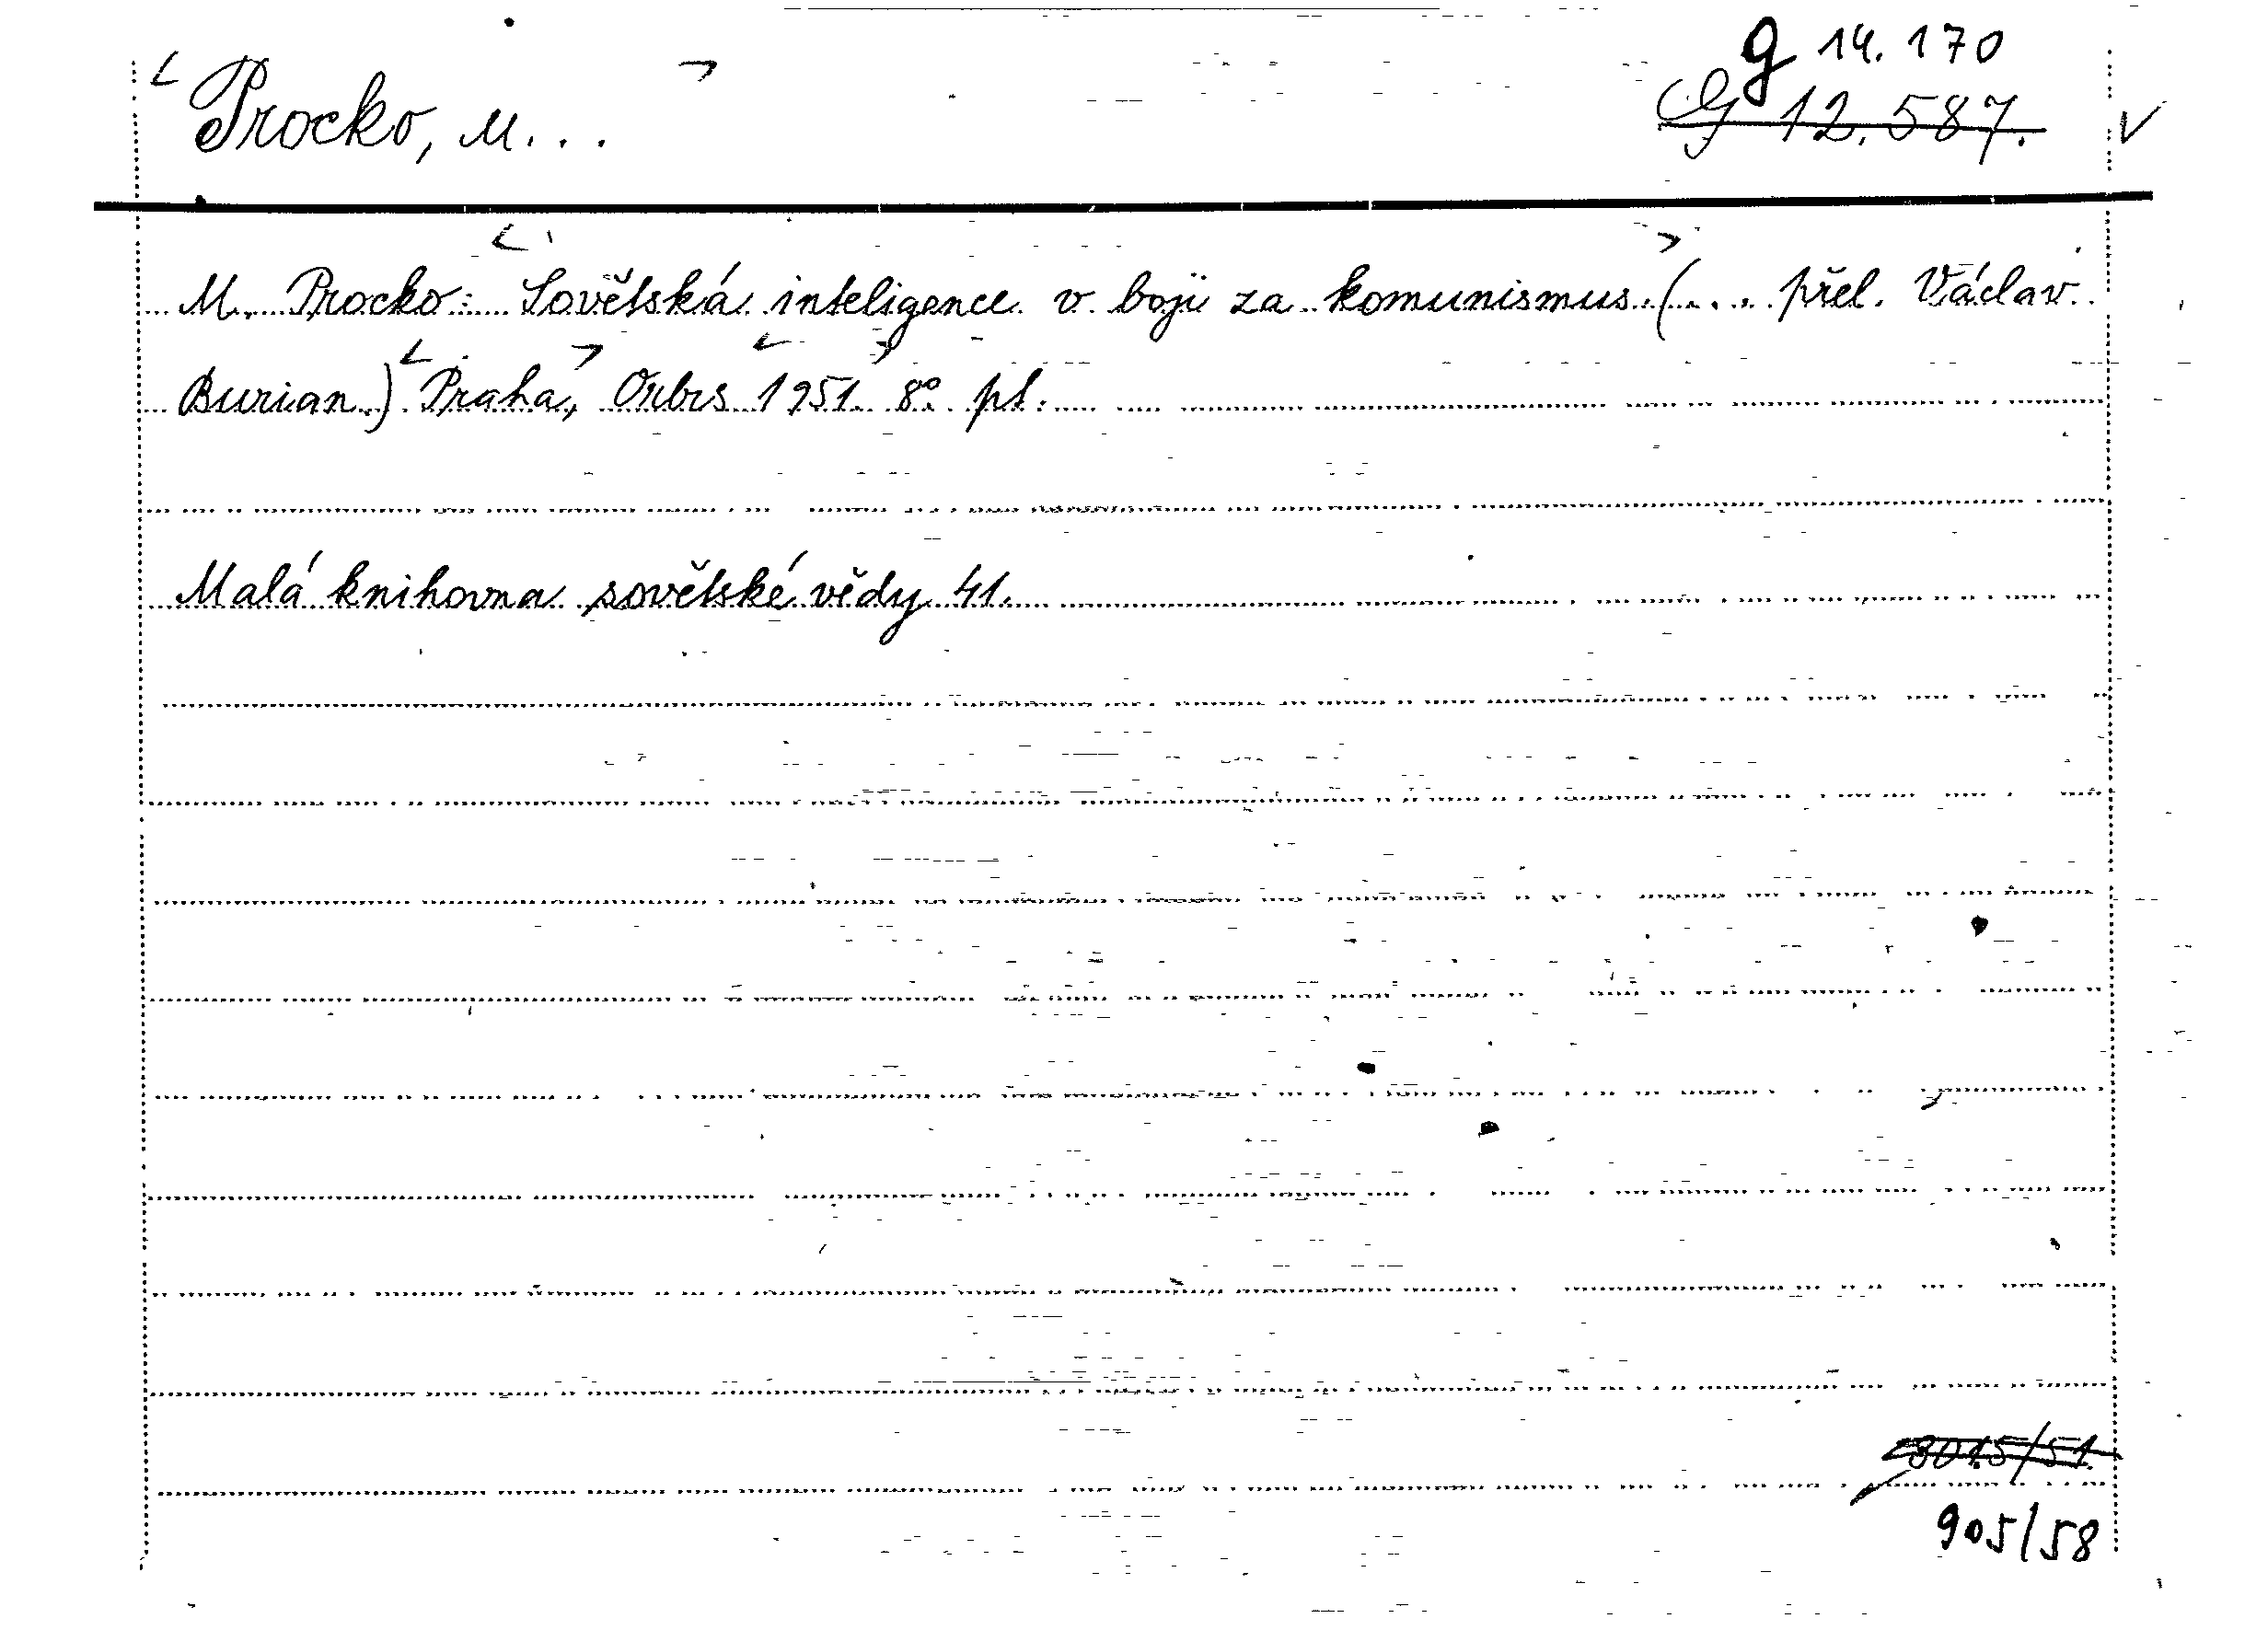 g 14.170
Procko, M...
G 12.587.
M. Procko: Sovětská inteligence v boji za komunismus. (... přel. Václav
Burian.) Praha, Orbis 1951. 8° pl.
Malá knihovna sovětské vědy 41.
8015/51.
905/58